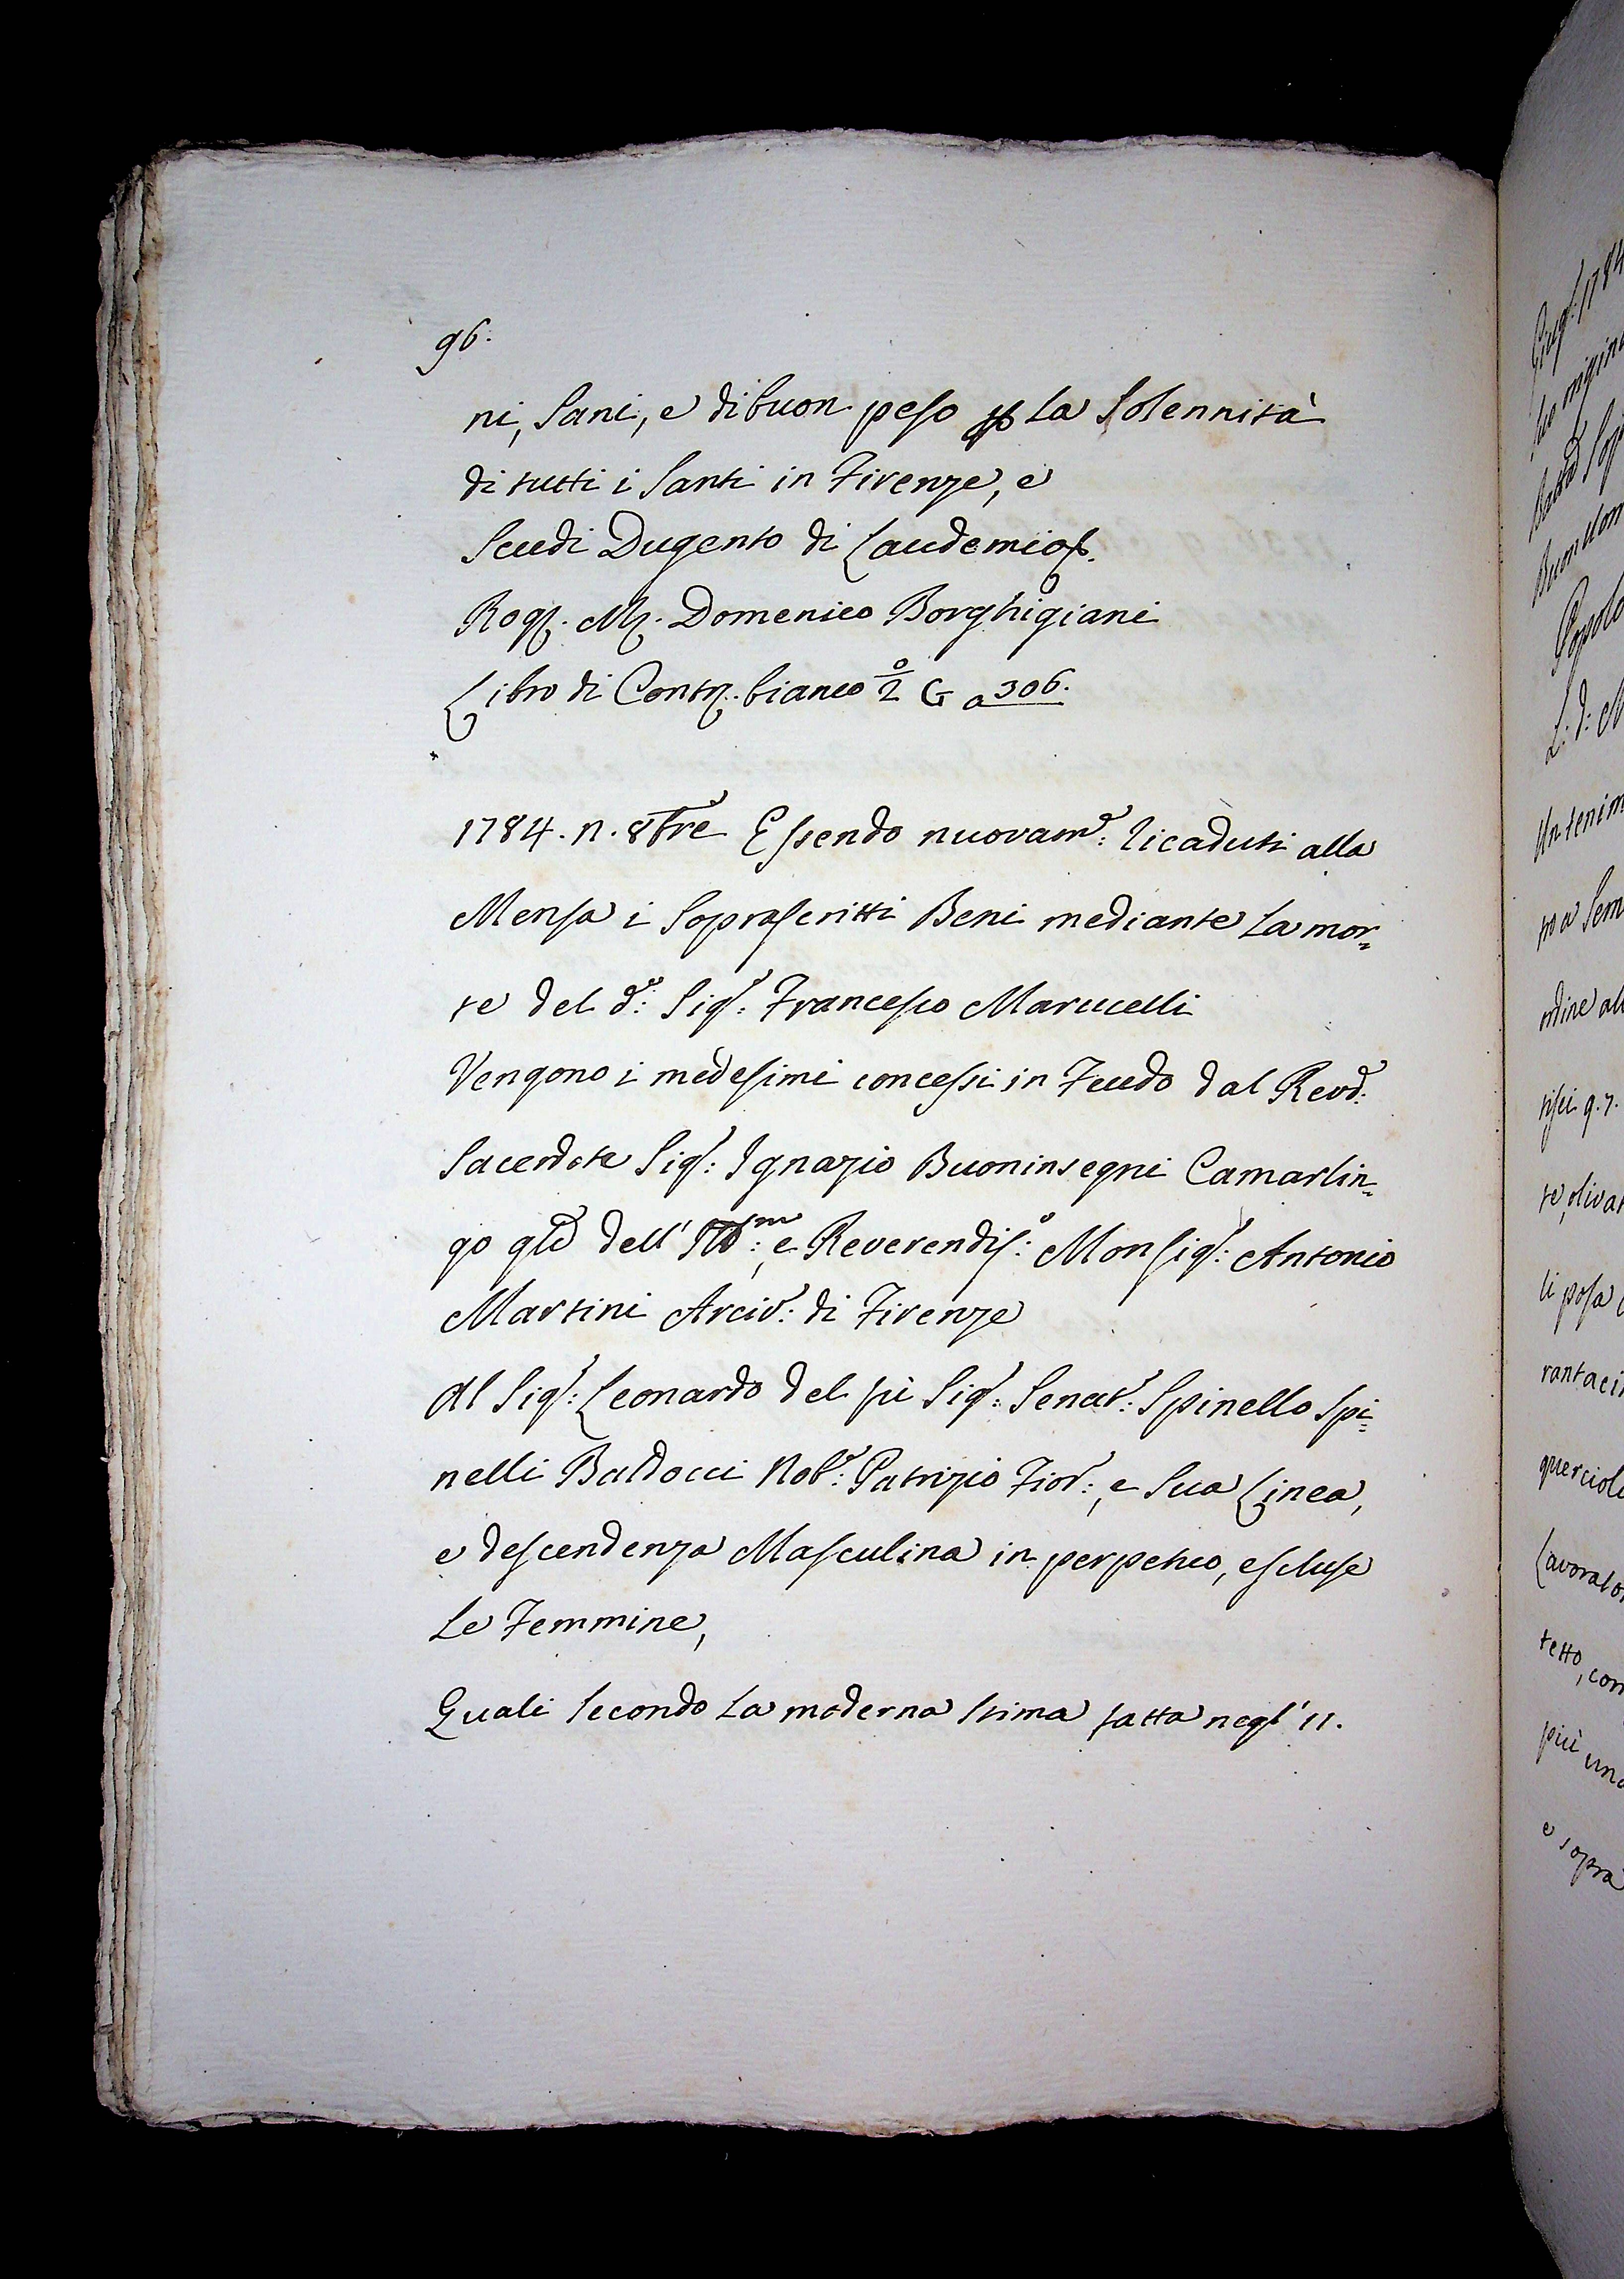 96.
ni, Sani, e di buon peso p La Solennità
di tutti i Santi in Firenze, e
Scudi Dugento di Laudemio.
Rog. M. Domenico Borghigiani
Libro di Contr. bianco 2° G a 306.
1784. n. 8bre Essendo nuovam.e: ricaduti alla
Mensa i Soprascritti Beni mediante La mor=
te del d.o: Sig.r: Francesco Marucelli
Vengono i medesimi concessi in Feudo dal Revd:
Sacerdote Sig.r: Ignazio Buoninsegni Camarlin=
go gle dell' Illmo:, e Reverendis.o: Monsig.r: Antonio
Martini Arciv.o: di Firenze
Al Sig.r: Leonardo del fù Sig.r: Senat.r: Spinello Spi=
nelli Baldocci Nob.e: Patrizio Fior.:, e Sua Linea,
e descendenza Masculina in perpetuo, escluse
Le Femmine,
Quali Secondo La moderna Stima fatta negl' 11.
Giug. 1784
Buon Uom
Popolo
L: d: M
Un tenim
ordine al
te, olivat
li posa
rantacin
querciol
Lavorato
tetto, con
più una
e sopra